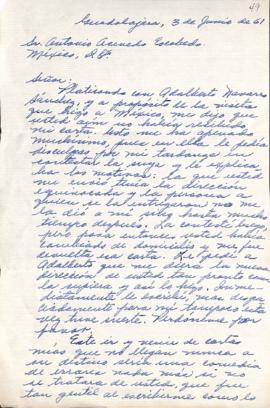 49
Guadalajara, 3 de Junio de 61
Sr. Antonio Acevedo Escobedo.
México, D.F.
Señor:
Platicando con Adalberto Navarro
Sánchez, y a propósito de la visita
que hizo a México, me dijo que
usted aún no había recibido
mi carta. Esto me ha apenado
muchísimo, pues en ella le pedía
disculpas por mi tardanza en
contestar la suya y le explica
ba los motivos: la que usted
me envió tenía la dirección
equivocada y la persona a
quien se la entregaron no me
la dio a mí sino hasta mucho
tiempo después. La contesté luego
pero para entonces usted había
cambiado de domicilio y me fue
devuelta esa carta. Le pedí a
Adalberto que me diera la nueva
dirección de usted tan pronto como
la supiera y así lo hizo. Inme-
diatamente le escribí, mas desgra
ciadamente para mí tampoco esta
vez tuve suerte. Perdóneme por
favor.
Este ir y venir de cartas
mías que no llegan nunca a
su destino sería una comedia
de errores nada más si no
se tratara de usted, que fue
tan gentil al escribirme como lo